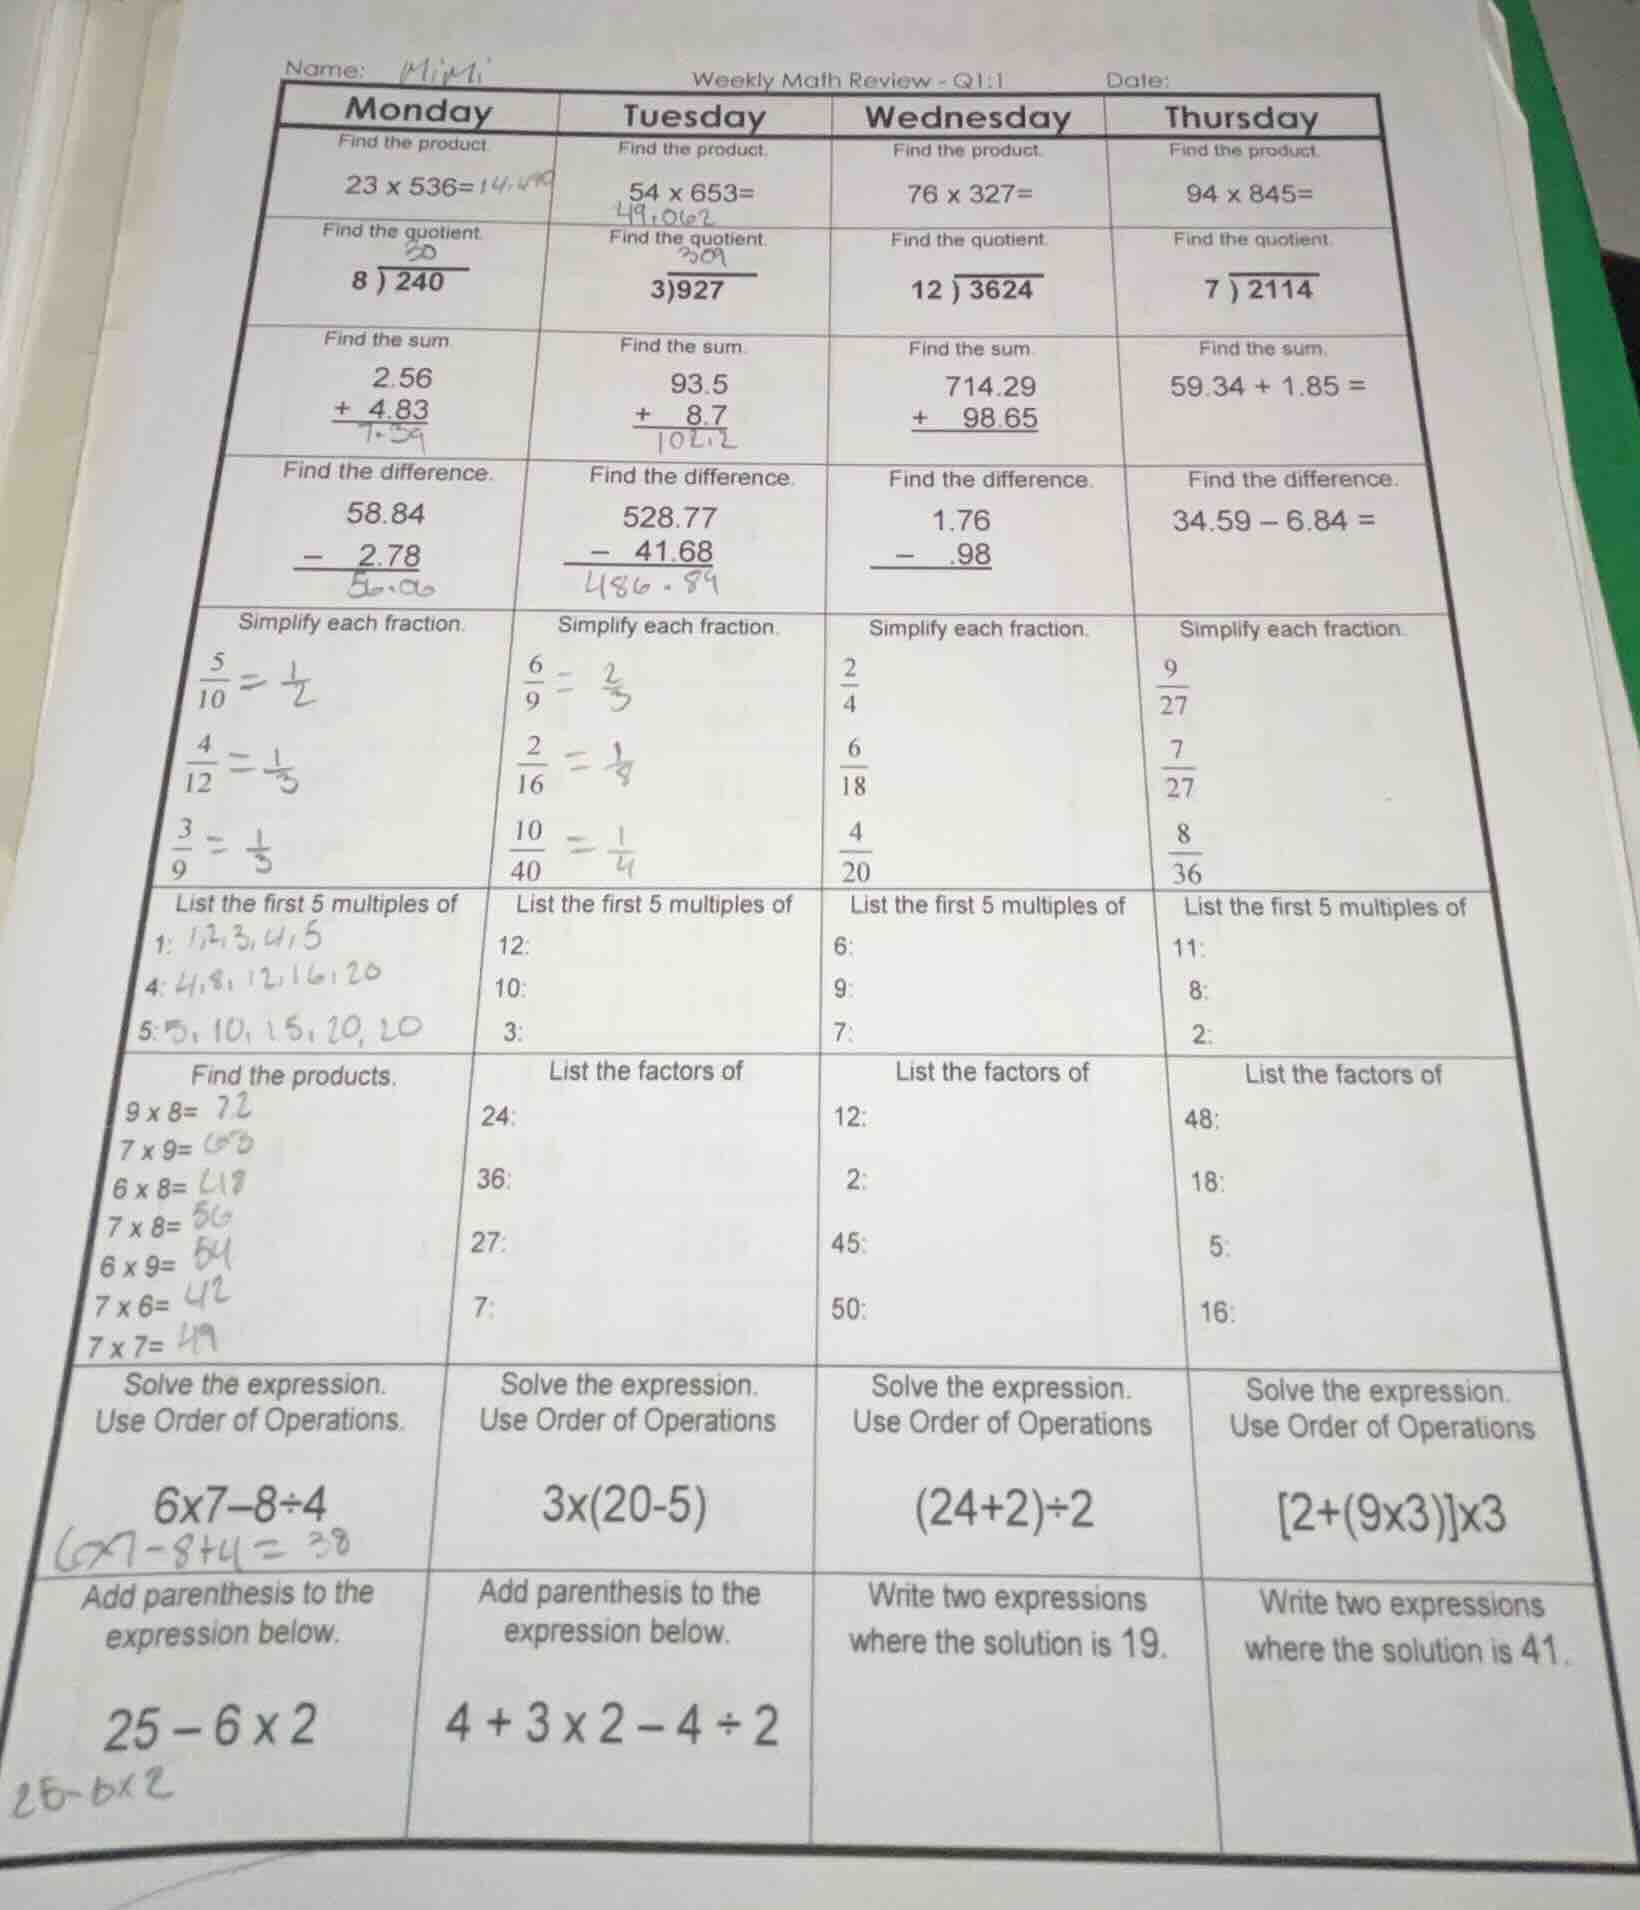 Name: MiMi Weekly Math Review - Q1:1 Date:
Monday Tuesday Wednesday Thursday
Find the product. Find the product. Find the product. Find the product.
23 x 536= 54 x 653= 76 x 327= 94 x 845=
49,062
Find the quotient. Find the quotient. Find the quotient. Find the quotient.
30 309
8 ) 240 3)927 12 ) 3624 7 ) 2114
Find the sum. Find the sum. Find the sum. Find the sum.
2.56 93.5 714.29 59.34 + 1.85 =
+ 4.83 + 8.7 + 98.65
7.39 102.2
Find the difference. Find the difference. Find the difference. Find the difference.
58.84 528.77 1.76 34.59 – 6.84 =
– 2.78 – 41.68 – .98
56.06 486.89
Simplify each fraction. Simplify each fraction. Simplify each fraction. Simplify each fraction.
5/10 = 1/2 6/9 = 2/3 2/4 9/27
4/12 = 1/3 2/16 = 1/8 6/18 7/27
3/9 = 1/3 10/40 = 1/4 4/20 8/36
List the first 5 multiples of List the first 5 multiples of List the first 5 multiples of List the first 5 multiples of
1: 1,2,3,4,5 12: 6: 11:
4: 4,8,12,16,20 10: 9: 8:
5: 5, 10, 15, 20, 20 3: 7: 2:
Find the products. List the factors of List the factors of List the factors of
9 x 8= 72 24: 12: 48:
7 x 9= 63
6 x 8= 48 36: 2: 18:
7 x 8= 56
6 x 9= 54 27: 45: 5:
7 x 6= 42 7: 50: 16:
7 x 7= 49
Solve the expression. Solve the expression. Solve the expression. Solve the expression.
Use Order of Operations. Use Order of Operations Use Order of Operations Use Order of Operations
6x7–8÷4 3x(20-5) (24+2)÷2 [2+(9x3)]x3
6x7-8+4= 38
Add parenthesis to the Add parenthesis to the Write two expressions Write two expressions
expression below. expression below. where the solution is 19. where the solution is 41.
25 – 6 x 2 4 + 3 x 2 – 4 ÷ 2
25-6x2